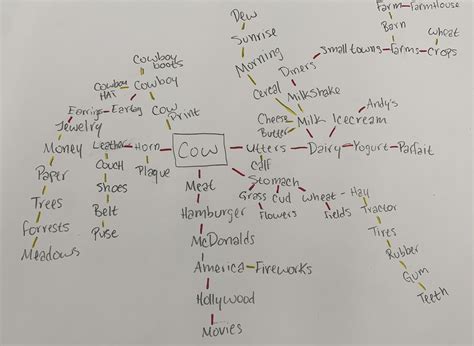 Dew
Sunrise
Morning
Cereal
Farm
Farmhouse
Barn
Wheat
Small towns
Farms
Crops
Diners
Milkshake
Cheese
Butter
Milk
Icecream
Andy's
Cowboy
boots
Cowboy
Cowboy
HAt
Cow
Print
Earrings
Eartag
Jewelry
Money
Paper
Trees
Forrests
Meadows
Leather
Horn
Couch
Plaque
Shoes
Belt
Puse
Cow
Utters
Dairy
Yogurt
Parfait
Calf
Stomach
Grass
Cud
Wheat
Hay
Flowers
Fields
Tractor
Tires
Rubber
Gum
Teeth
Meat
Hamburger
McDonalds
America
Fireworks
Hollywood
Movies